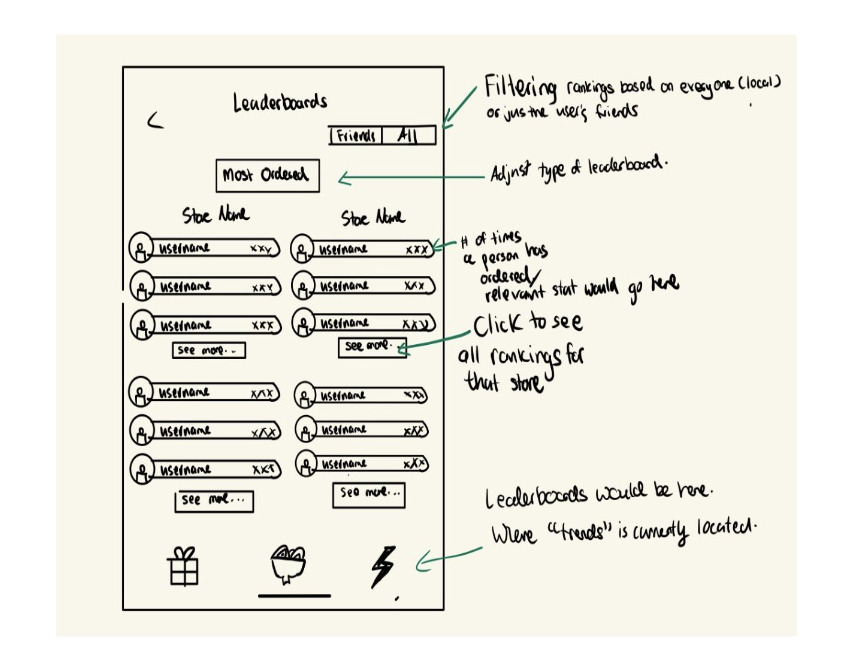 Leaderboards
Friends All
Most Ordered
Store Name Store Name
username xxx username xxx
username xxx username xxx
username xxx username xxx
see more... see more..
username xxx username xxx
username xxx username xxx
username xxx username xxx
see more... see more...
Filtering rankings based on everyone (local)
or just the user's friends
Adjust type of leaderboard.
# of times
a person has
ordered/
relevant stat would go here
Click to see
all rankings for
that store
Leaderboards would be here.
Where "trends" is currently located.